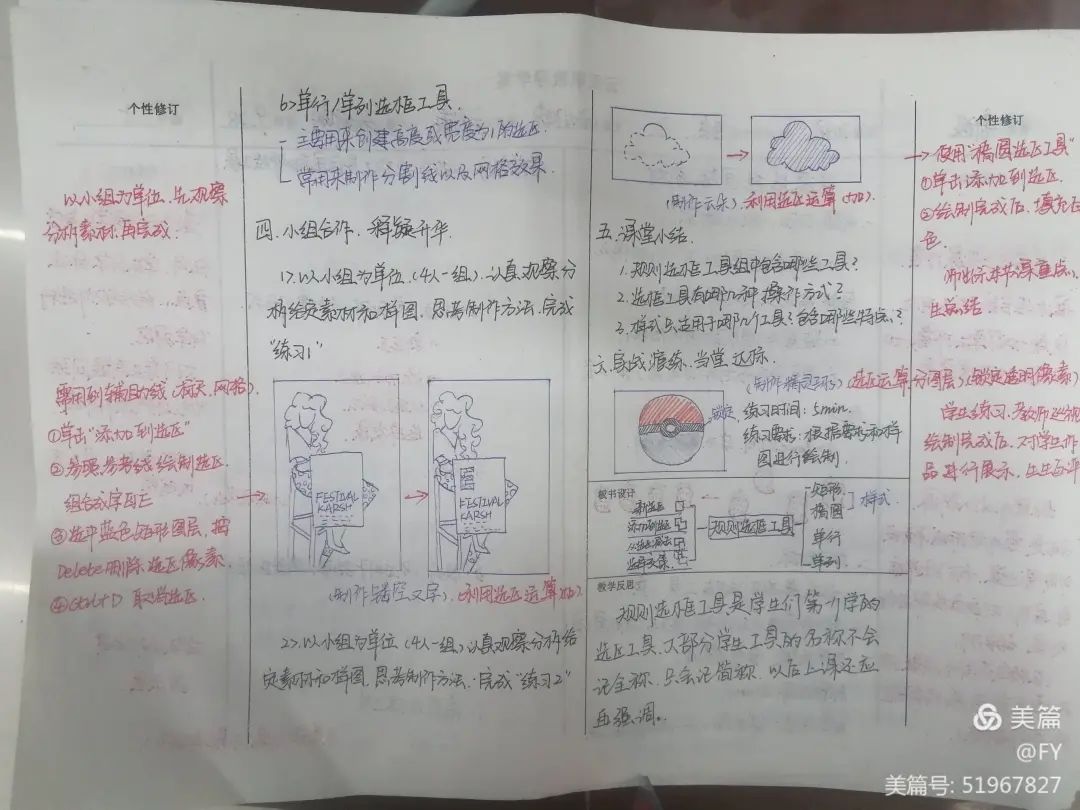 个性修订
以小组为单位,先观察
分析素材,再完成.
需用到辅助线(标尺、网格).
①单击"添加到选区"
②参照参考线绘制选区.
组合成字即正
③选中蓝色矩形图层,按
Delete删除选区像素.
④Ctrl+D 取消选区.
6>单行/单列选框工具.
主要用来创建高度或宽度为1的选区
常用来制作分割线以及网格效果.
四、小组合作、释疑升华.
1>.以小组为单位(4人一组).认真观察分
析给定素材和样图.思考制作方法.完成
"练习1"
FESTIVAL
KARSH
FESTIVAL
KARSH
(制作镂空文字).(利用选区运算(加)).
2>.以小组为单位(4人一组)认真观察分析给
定素材和样图.思考制作方法.完成"练习2"
(制作云朵).利用选区运算(加).
五.课堂小结.
1.规则选框工具组中包含哪些工具?
2.选框工具有哪几种操作方式?
3.样式只适用于哪几个工具?包含哪些特点?
六.实战演练、当堂达标.
(制作精灵球)(选区运算 分图层)(锁定透明像素)
锁定
练习时间:5min.
练习要求:根据要求和样
图进行绘制.
板书设计
新选区
添加到选区
从选区减去
选择交集
规则选框工具
矩形
椭圆
单行
单列
样式
教学反思
规则选框工具是学生们第一个学的
选区工具.大部分学生工具的名称不会
记全称.只会记简称.以后上课还应
再强调.
个性修订
使用"椭圆选区工具"
①单击添加到选区.
②绘制完成后,填充颜
色.
师出示本节课重点.
生总结
学生练习.教师巡视
绘制完成后.对学生作
品进行展示.生生互评
美篇
@FY
美篇号: 51967827